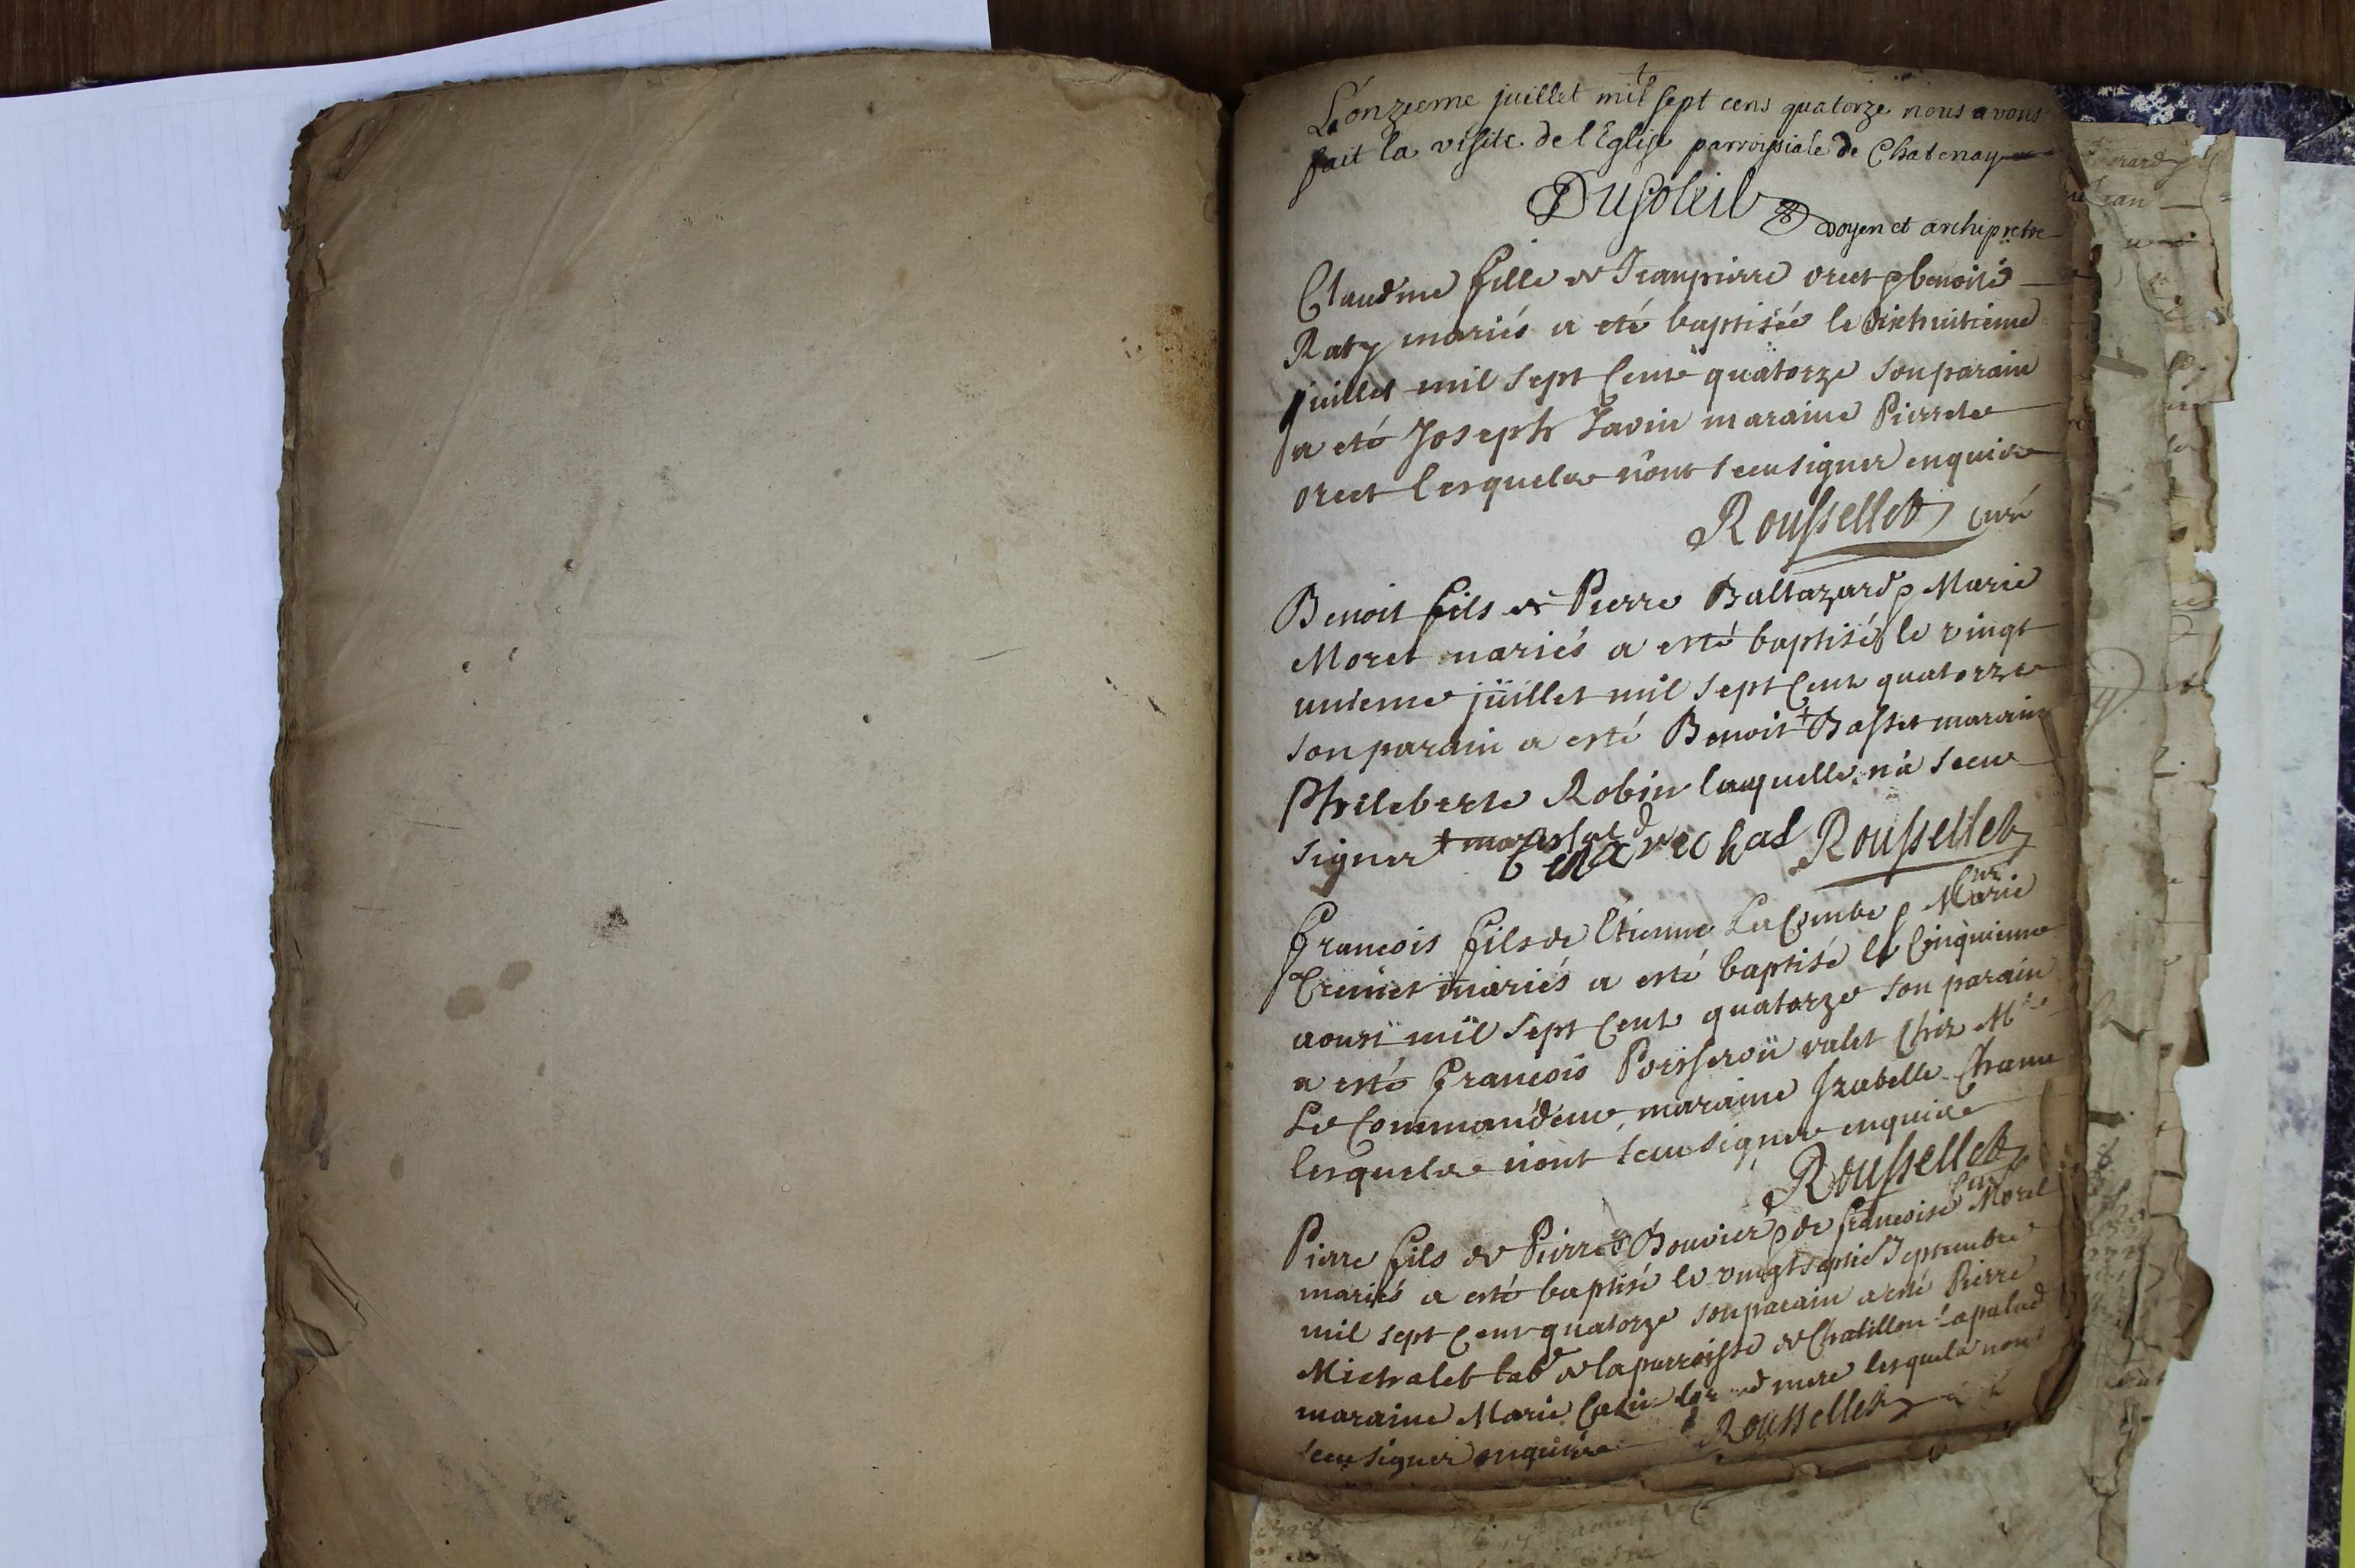 L'onzieme juillet mil sept cens quatorze nous avons
fait la visite de l'Eglise parroissiale de Chatenay
Dusoleil doyen et archipretre
Claudine fille de Jeanpierre oret & benoite
Raty mariés a eté baptisée le dixhuitieme
juillet mil sept Cent quatorze son parain
a eté Joseph Zavin maraine Pierrete
oret lesquels n'ont sceu signer enquis
Roussellet curé
Benoit fils de Pierre Baltazard & Marie
Moret mariés a esté baptisé le vingt
unieme juillet mil sept Cent quatorze
son parain a esté Benoit + Basset maraine
Phileberte Robin laquelle n'a sceu
signer + Roussellet
Curé
francois fils de Etienne LaCombe & Marie
mariés a esté baptisé le Cinquieme
aoust mil sept Cent quatorze son parain
a esté francois valet Chez Mr
Le Commandeur, maraine Izabelle
lesquels n'ont sceu signer enquis
Roussellet
Curé
Pierre fils de Pierre Bouvier & de francoise Morel
mariés a esté baptisé le vingt septie Septembre
mil sept Cent quatorze son parain a esté Pierre
Michalet lab de la parroisse de Chatillon Lapalud
maraine Marie mere lesquels n'ont
sceu signer enquis Roussellet